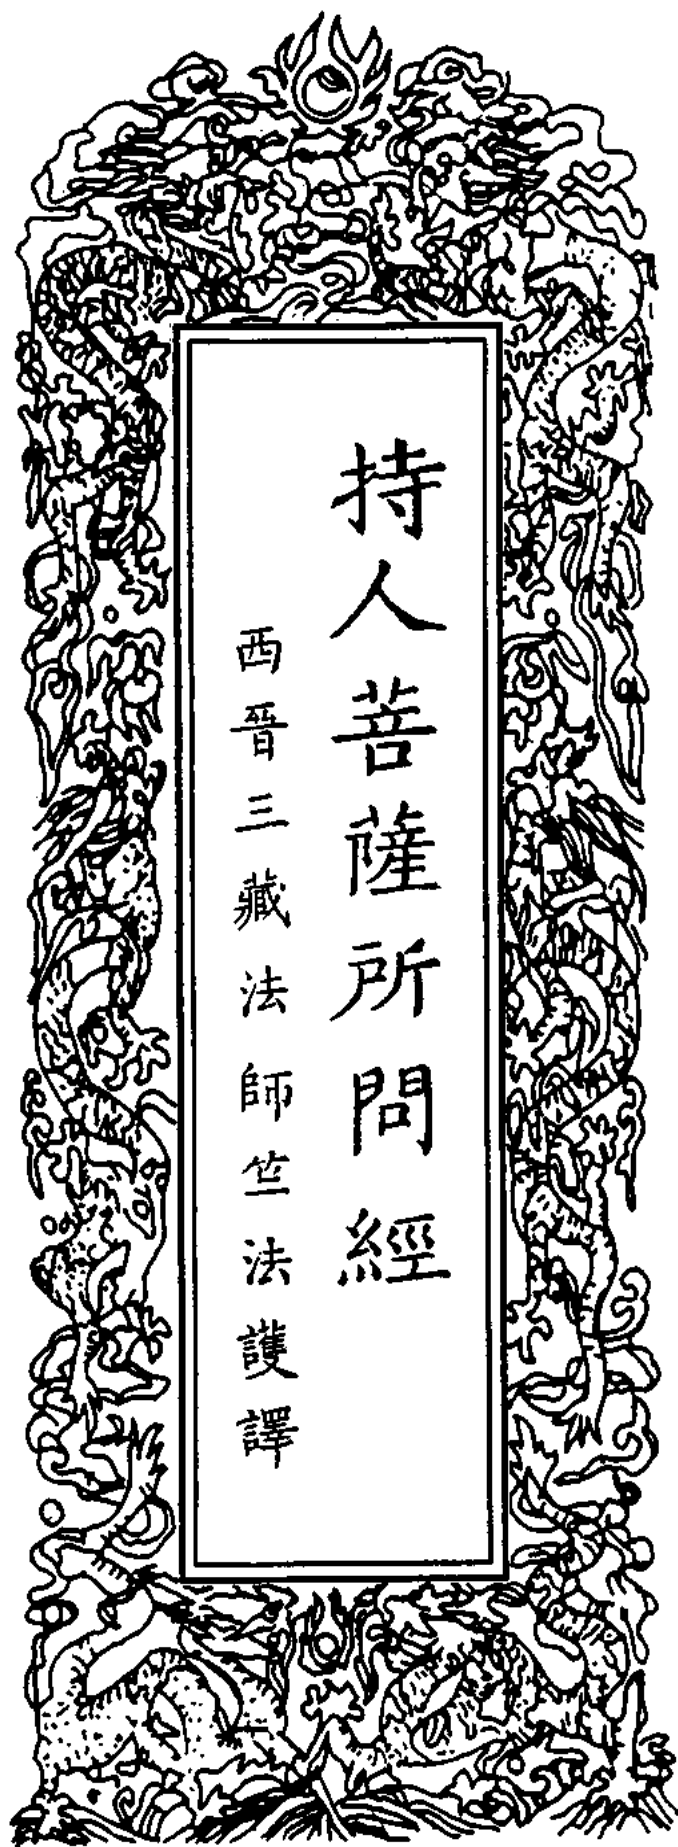 持人菩薩所問經
西晉三藏法師竺法護譯